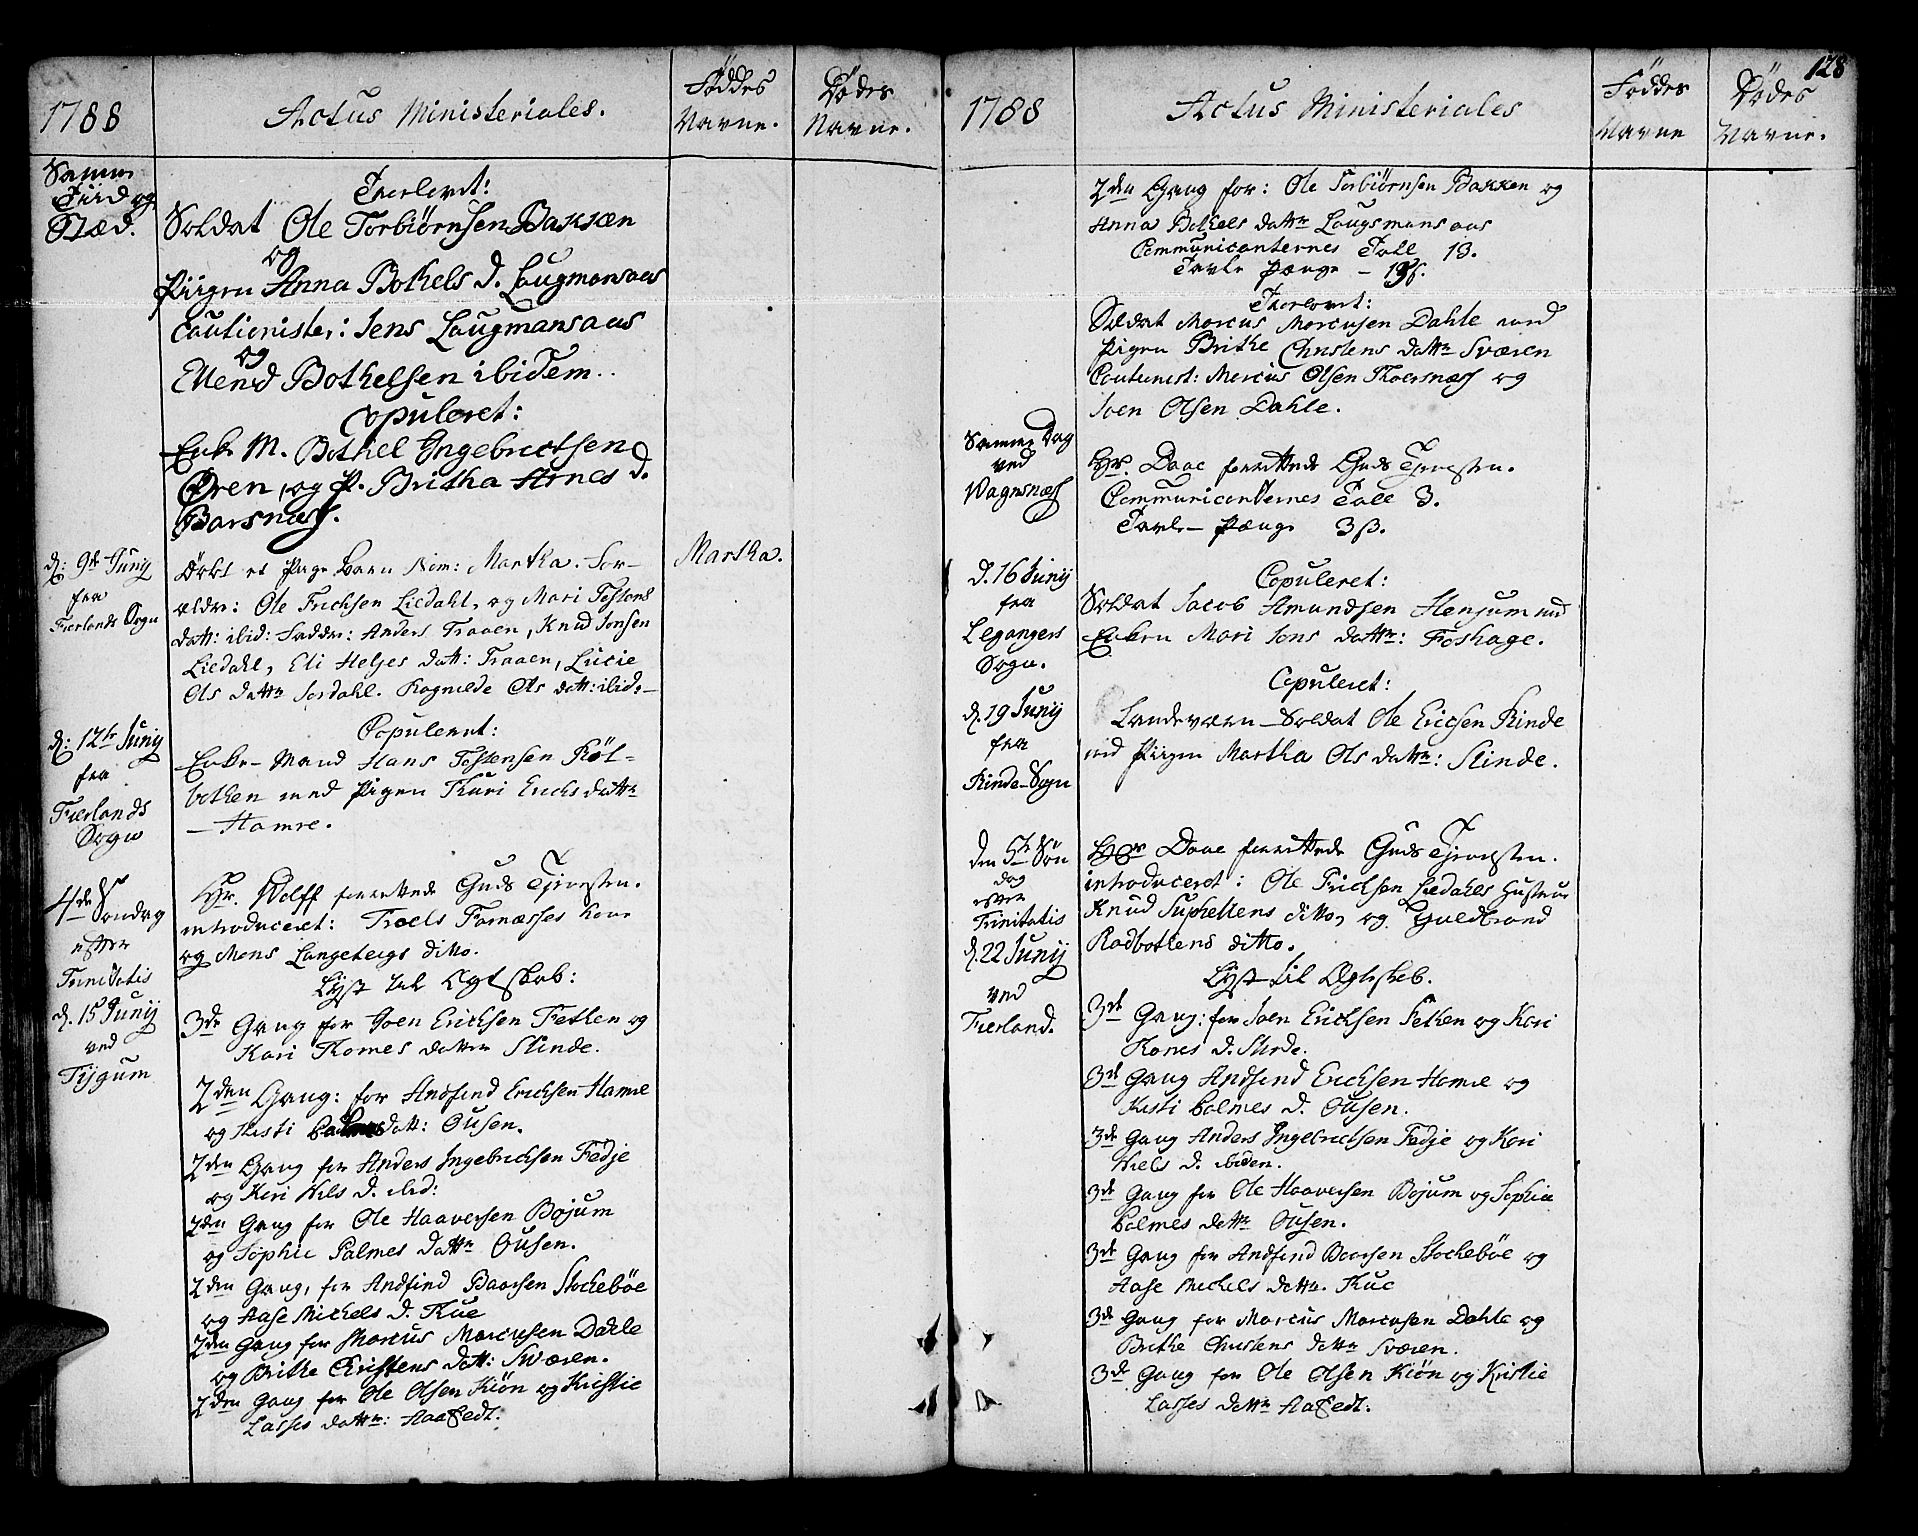 1788
Actus Ministeriales.
Føddes
Navne.
Dødes
Navne.
Samme
Tiid og
Stæd.
Troelovet:
Soldat Ole Torbiørnsen Bakken
og
Piigen Anna Bothels D. Laugmansaas
Cautionister: Jens Laugmansaas
og
Ellend Bothelsen ibidem.
Copuleret:
Enke M. Bothel Ingebrectsen
Øren, og P. Britha Arnes D.
Barsnæss.
d: 9de Junij
fra
Fierlands Sogn
Døbt et Pige barn Nom: Martha. For-
ældre: Ole Frichsen Liedahl, og Mari Tostens
datt: ibid: Fadder: Anders Traaen, Knud Jensen
Liedahl, Eli Heljes datt: Traaen, Lucie
Ols dattr Jordahl. Ragnilde Ols datt: ibid.
Martha.
d: 12te Junij
fra
Fierlands
Sogn
Copuleret:
Enke-Mand Hans Tostensen Røt-
bothen med Pigen Thuri Erichs dattr
Hamre.
4de Søndag
efter
Trinitatis
d. 15 Junij
ved
Tijgum
Hr. Wolff forrettede Guds Tjenesten.
introduceret: Troels Farnæsses kone
og Mons Langeteigs ditto.
Lyst til Ægteskab:
3de Gang for Joen Erichsen Fethen og
Kari Thomes datter Slinde.
2den Gang: for Andfind Erichsen Hamre
og Kisti datt: Ousen.
2den Gang for Anders Ingebrichsen Fedje
og Kari Nils D. ibid:
2den Gang for Ole Haaversen Bojum
og Sophie Palmes dattr Ousen.
2den Gang, for Andfind Baarsen Stochebøe
og Aase Michels D. Kue
2den Gang for Marcus Marcusen Dahle
og Brithe Christens datt: Sværen.
2den Gang for Ole Olsen Kiøn og Kristie
Lasses dattr: Aafedt.
1788
Actus Ministeriales
Føddes
Navne
128
Dødes
Navne.
2den Gang for: Ole Torbiørnsen Bakken og
Anna Bothels dattr Laugmansaas
Communicanternes Tall 13.
Tavle Pænge -
Troelovet:
Soldat Marcus Marcusen Dahle med
Pigen Brithe Christens dattr Sværen
Cautionist: Marcus Olsen Thorsnæss og
Joen Olsen Dahle.
Samme Dag
ved
Vagnsnæss
Hr. Daae forrettede Guds Tjenesten.
Communicanternes Tall 3.
Tavle-Pænge 3 ß.
d. 16 Junij
fra
Legangers
Sogn.
Copuleret:
Soldat Jacob Amundsen Henjum med
Enken Mari Jens dattr: Foshage.
d. 19 Junij
fra
Rinde-Sogn
Copuleret:
Landeværn-Soldat Ole Ericsen Rinde
med Pigen Martha Ols dattr: Slinde.
den 5te Søn
dag
efter
Trinitatis
d. 22 Junij
ved
Fierland.
Hr Daae forrettede Guds Tjenesten.
introduceret: Ole Frichsen Liedahls Hustrue
Knud Suphellens ditto, og Guldbrand
Rødbothens ditto.
Lyst til Ægteskab.
3de Gang: for Joen Erichsen Fethen og Kari
Tomes D. Slinde.
3de Gang Andfind Erichsen Hamre og
Kisti Palmes D. Ousen.
3de Gang Anders Ingebrectsen Fedje og Kari
Niels D. ibidem.
3de Gang for Ole Haaversen Bojum og Sophie
Palmes dattr Ousen.
3de Gang for Andfind Baarsen Stochebøe og
Aase Michels dattr. Kue
3de Gang for Marcus Marcusen Dahle og
Brithe Christens dattr Sværen.
3de Gang for Ole Olsen Kiøn og Kristie
Lasses dattr Aafedt.